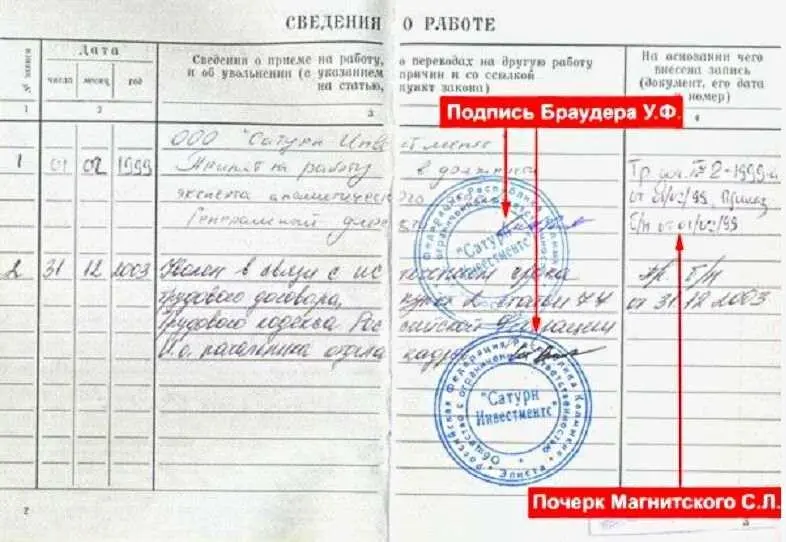 СВЕДЕНИЯ О РАБОТЕ
№ записи
Дата
число месяц год
Сведения о приеме на работу, о переводах на другую работу
и об увольнении (с указанием причин и со ссылкой
на статью, пункт закона)
На основании чего
внесена запись
(документ, его дата
и номер)
1 2 3 4
Подпись Браудера У.Ф.
ООО "Сатурн Инвестментс
1 01 02 1999 Принят на работу в должности
эксперта аналитического
Генеральный
от 01/02/99 Приказ
Б/н от 01/02/99
"Сатурн Инвестментс"
2 31 12 2003 Уволен в связи с истечением срока пр. б/н
трудового договора, пункт 2 статьи 77 от 31.12.2003
Трудового кодекса Российской Федерации
И.о. начальника отдела кадров
Российская Федерация Республика Калмыкия
Общество с ограниченной ответственностью
"Сатурн
Инвестментс"
Элиста
Почерк Магнитского С.Л.
2 3